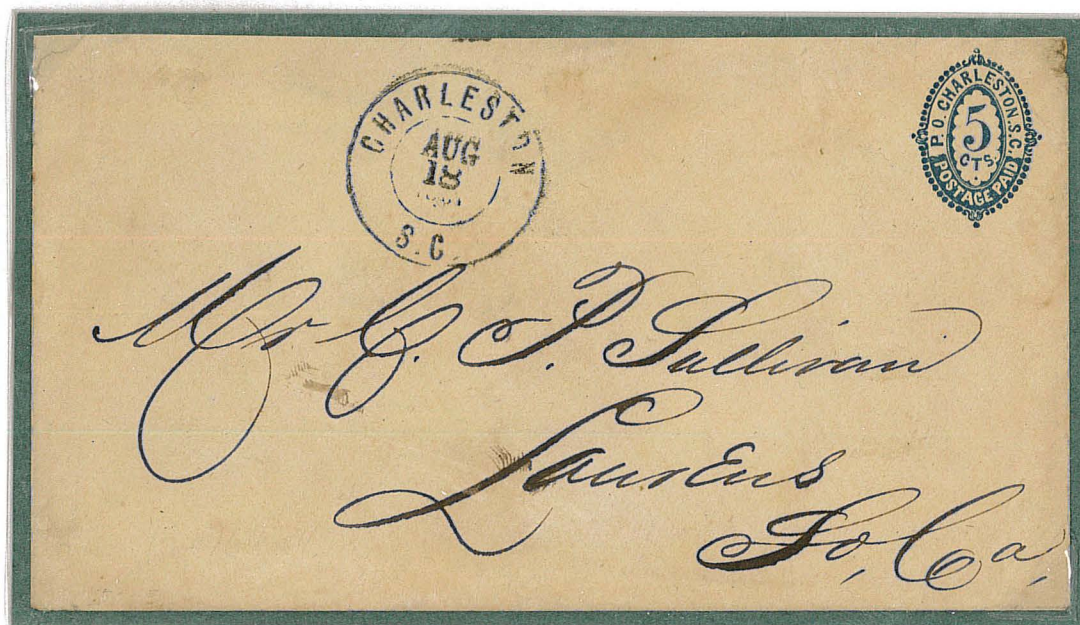 CHARLESTON
AUG
18
S.C.
P.O. CHARLESTON. S.C.
5
CTS.
POSTAGE PAID
Mr C. P. Sullivan
Laurens
So, Ca,